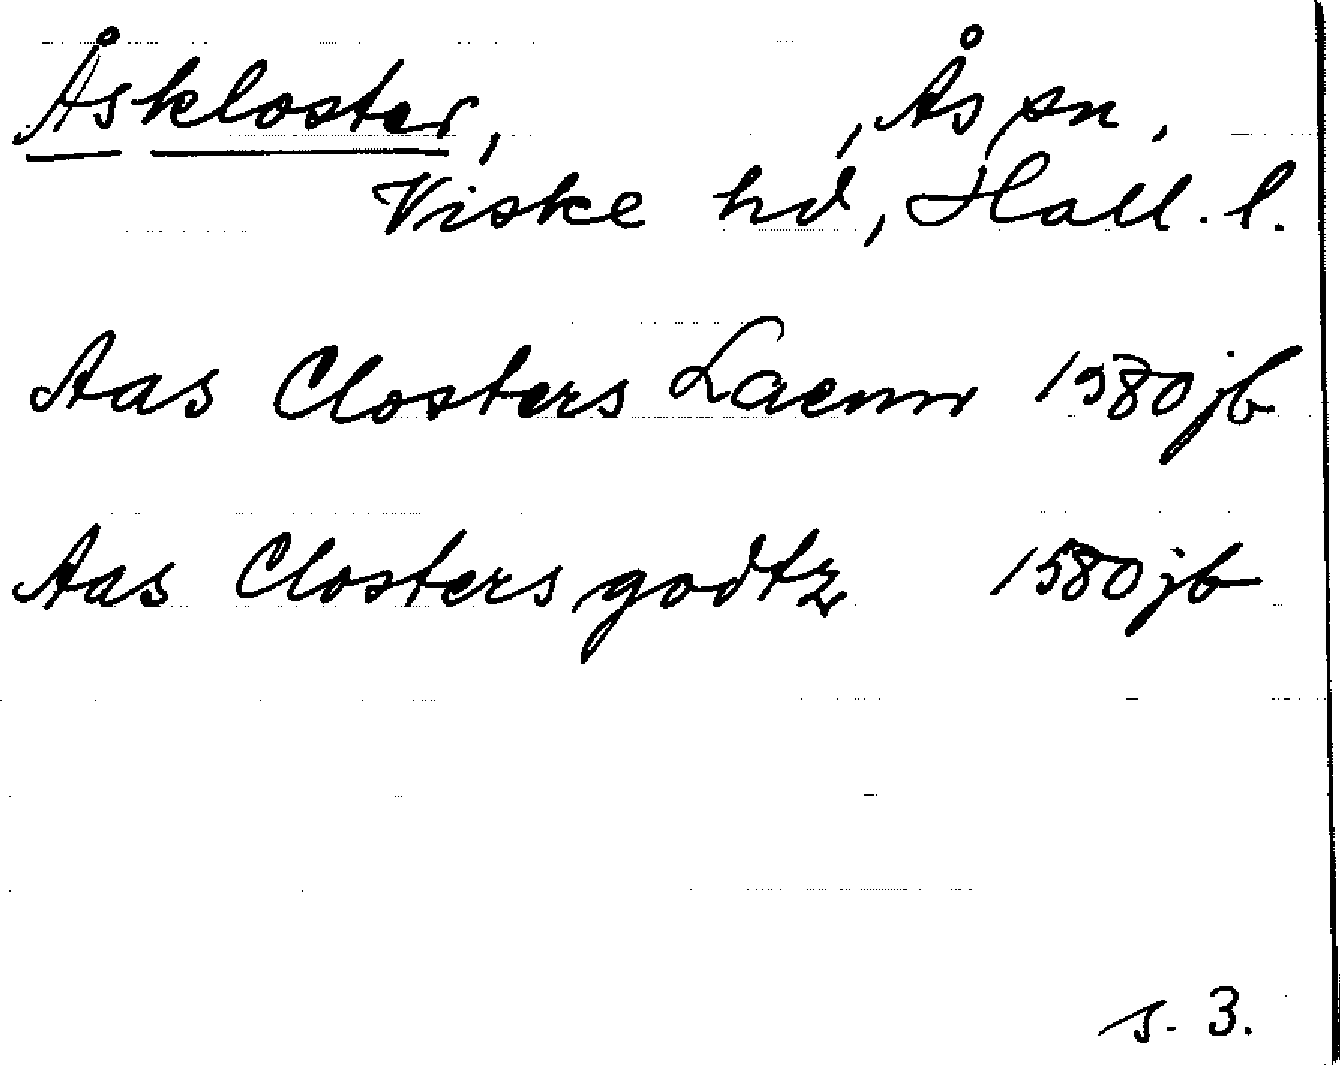 Åskloster, , Ås sn,
Viske hd, Hall. l.
Aas Closters Laenn 1580 jb
Aas Closters godtz 1580 jb
s. 3.